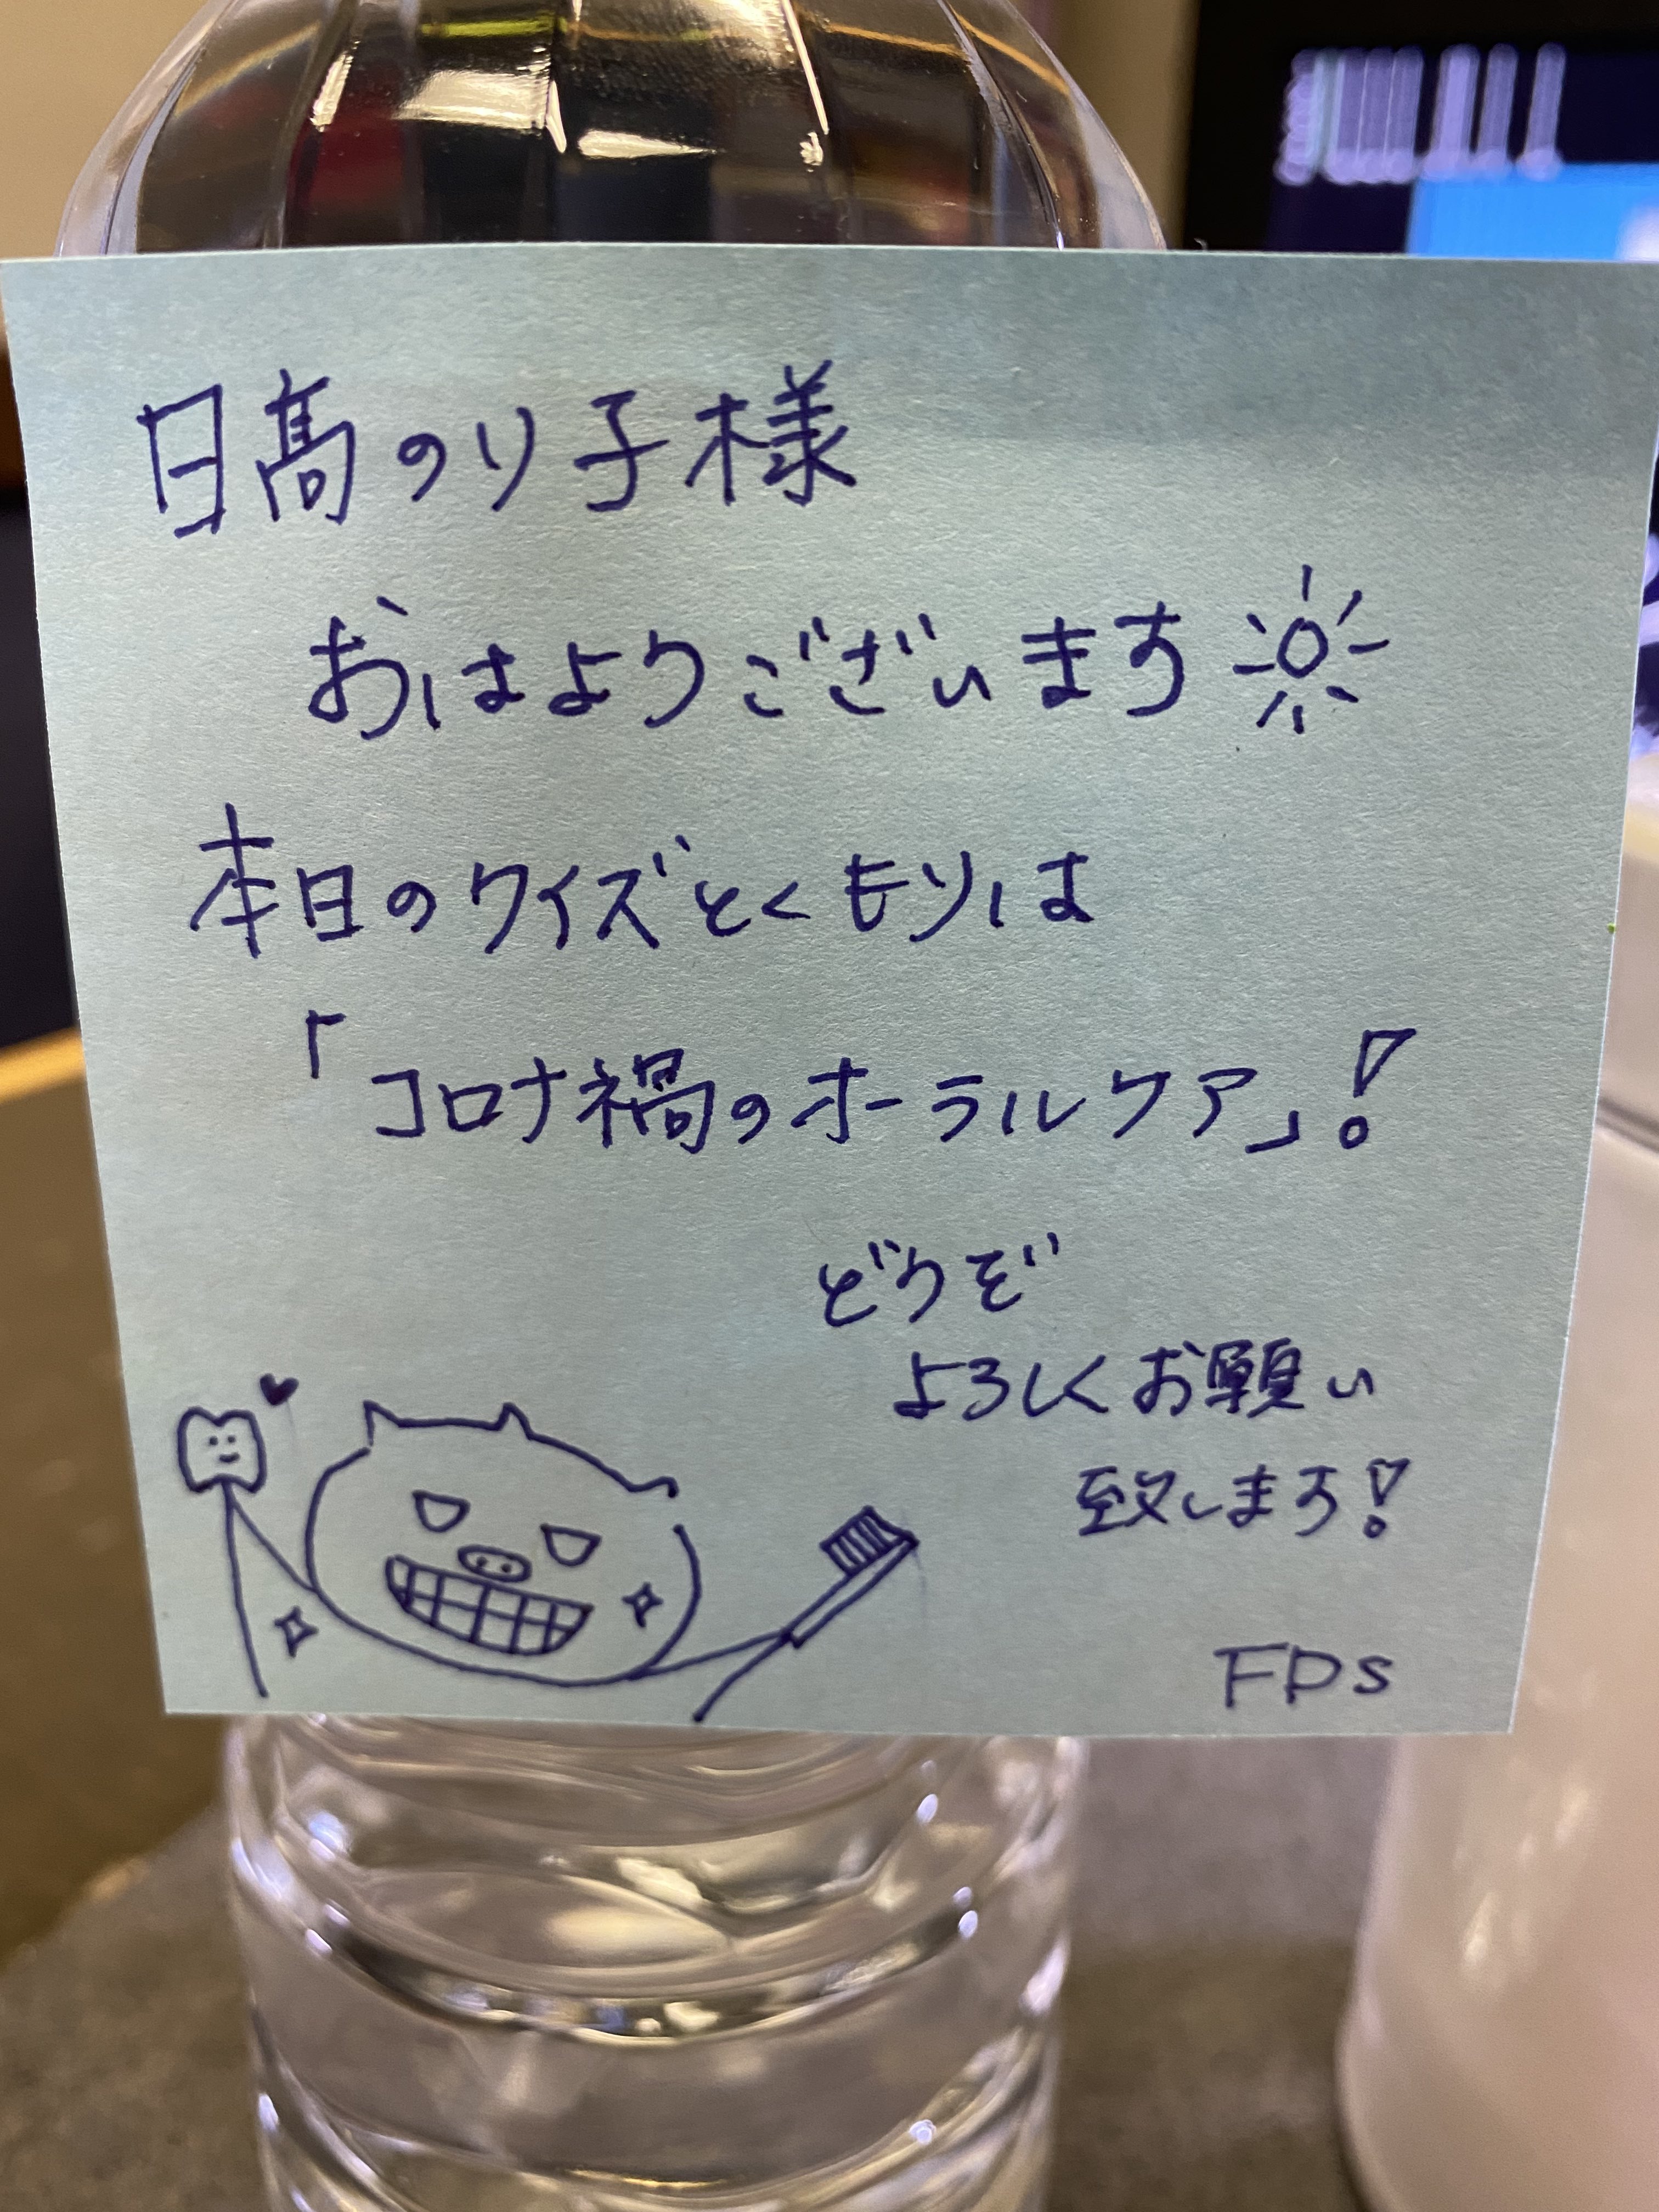 日髙のり子様
おはようございます
本日のクイズとくもりは
「コロナ禍のオーラルケア」!
どうぞ
よろしくお願い
致します!
FDs